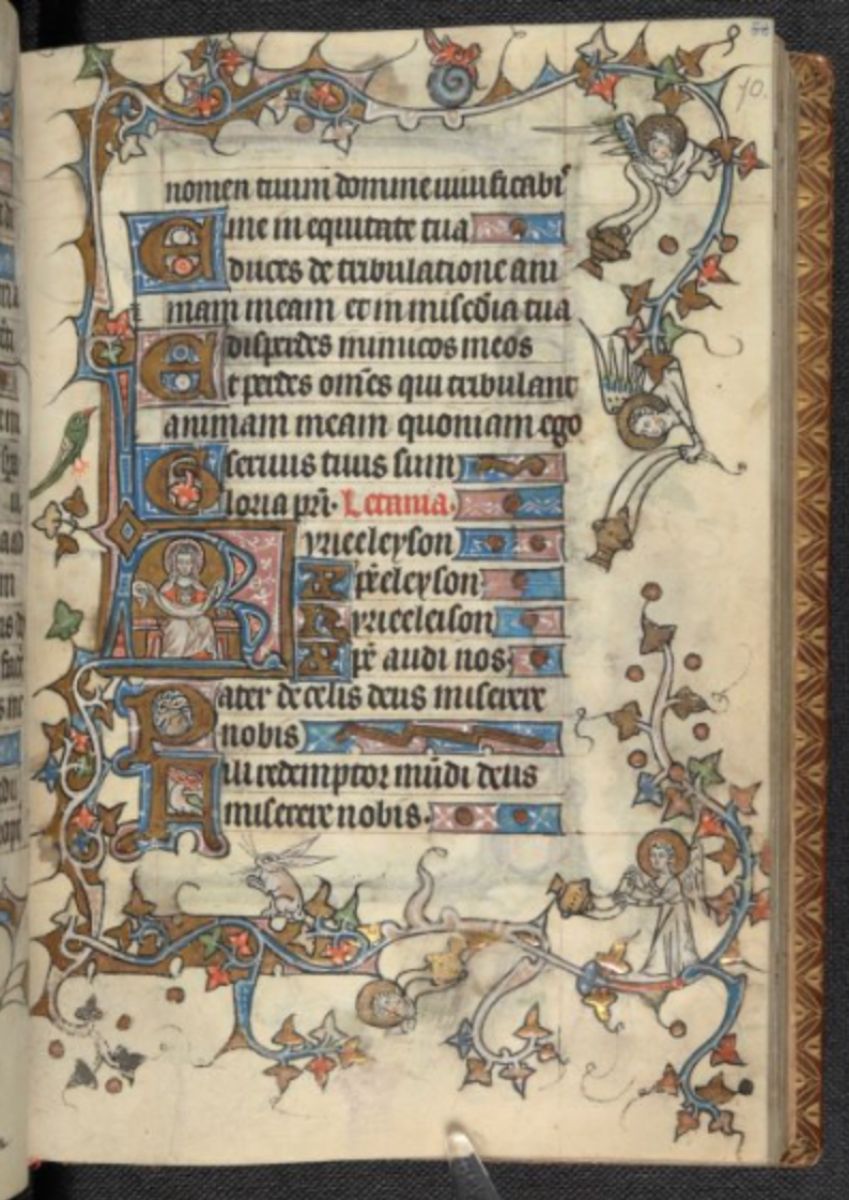 70.
nomen tuum domine uiuificabi͛
Eme in equitate tua
duces de tribulatione ani
mam meam et in misc̄dia tua
Edisperdes inimicos meos
Et perdes om̄es qui tribulant
animam meam quoniam ego
seruus tuus sum
Gloria pr̄i. Letania.
Kyrieeleyson
Xp̄eeleyson
Kyrieeleison
Xp̄e audi nos
Pater de celis deus miserere
nobis
Fili redemptor mūdi deus
miserere nobis.